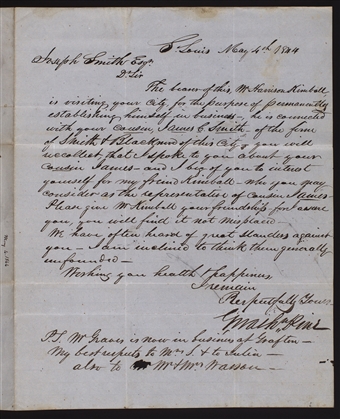 St Louis May 4th 1844
Joseph Smith Esqr
Dr Sir
The bearer of this, Mr Harrison Kimball
is visiting your City, for the purpose of permanently
establishing himself in business, he is connected
with your Cousin, James C Smith - of the firm
of Smith & Blackwood of this City, you will
recollect, that I spoke to you about your
Cousin James - and I beg of you to interest
yourself for my friend Kimball - who you may
consider as the representative of Cousin James -
Please give Mr Kimball your friendship, for I assure
you, you will find it not misplaced -
We have often heard of great slanders against
you - I am inclined to think them generally
unfounded -
Wishing you health & happiness
I remain
Respectfully Yours
P.S. Mr Graves is now in business at Grafton -
My best respects to Mrs S. & to Julia -
also to Mr & Mrs Wasson -